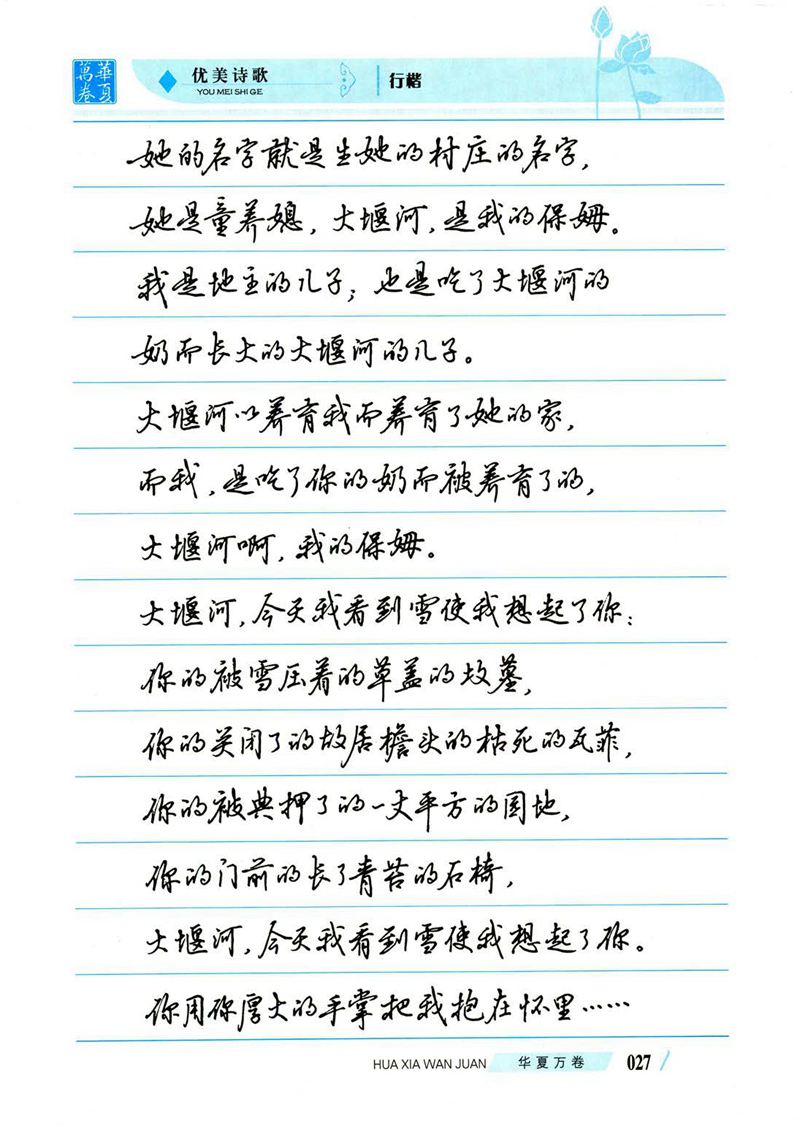 華夏
萬卷
优美诗歌
YOU MEI SHI GE
行楷
她的名字就是生她的村庄的名字，
她是童养媳，大堰河，是我的保姆。
我是地主的儿子；也是吃了大堰河的
奶而长大的大堰河的儿子。
大堰河以养育我而养育了她的家，
而我，是吃了你的奶而被养育了的，
大堰河啊，我的保姆。
大堰河，今天我看到雪使我想起了你：
你的被雪压着的草盖的坟墓，
你的关闭了的故居檐头的枯死的瓦菲，
你的被典押了的一丈平方的园地，
你的门前的长了青苔的石椅，
大堰河，今天我看到雪使我想起了你。
你用你厚大的手掌把我抱在怀里……
HUA XIA WAN JUAN
华夏万卷
027